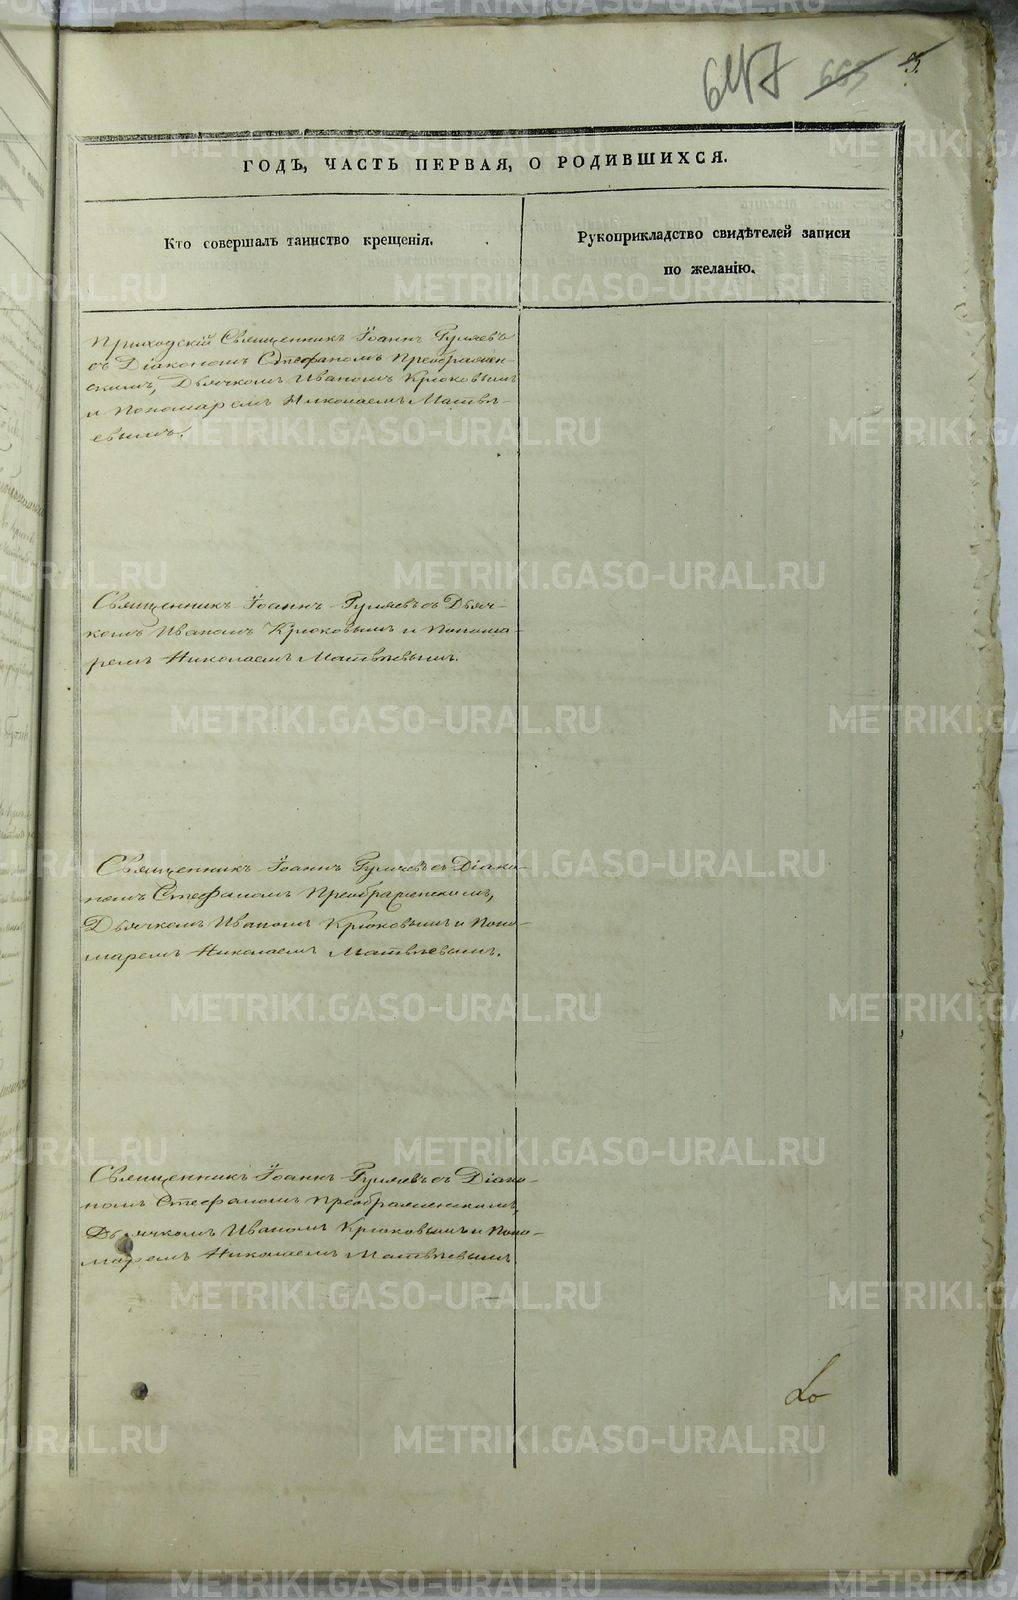 647 665 5.
ГОДЪ, ЧАСТЬ ПЕРВАЯ, О РОДИВШИХСЯ.
Кто совершалъ таинство крещенія.
Рукоприкладство свидѣтелей записи
по желанію.
Приходскій Священникъ Іоаннъ Гуляевъ
съ Діакономъ Стефаномъ Преображен-
скимъ, Дьячкомъ Иваномъ Крюковымъ
и Пономаремъ Николаемъ Матвѣ-
евымъ.
Священникъ Іоаннъ Гуляевъ съ Дьяч-
комъ Иваномъ Крюковымъ и Понома-
ремъ Николаемъ Матвѣевымъ.
Священникъ Іоаннъ Гуляевъ съ Діако-
номъ Стефаномъ Преображенскимъ,
Дьячкомъ Иваномъ Крюковымъ и Поно-
маремъ Николаемъ Матвѣевымъ.
Священникъ Іоаннъ Гуляевъ съ Діако-
номъ Стефаномъ Преображенскимъ,
Дьячкомъ Иваномъ Крюковымъ и Поно-
маремъ Николаемъ Матвѣевымъ
METRIKI.GASO-URAL.RU